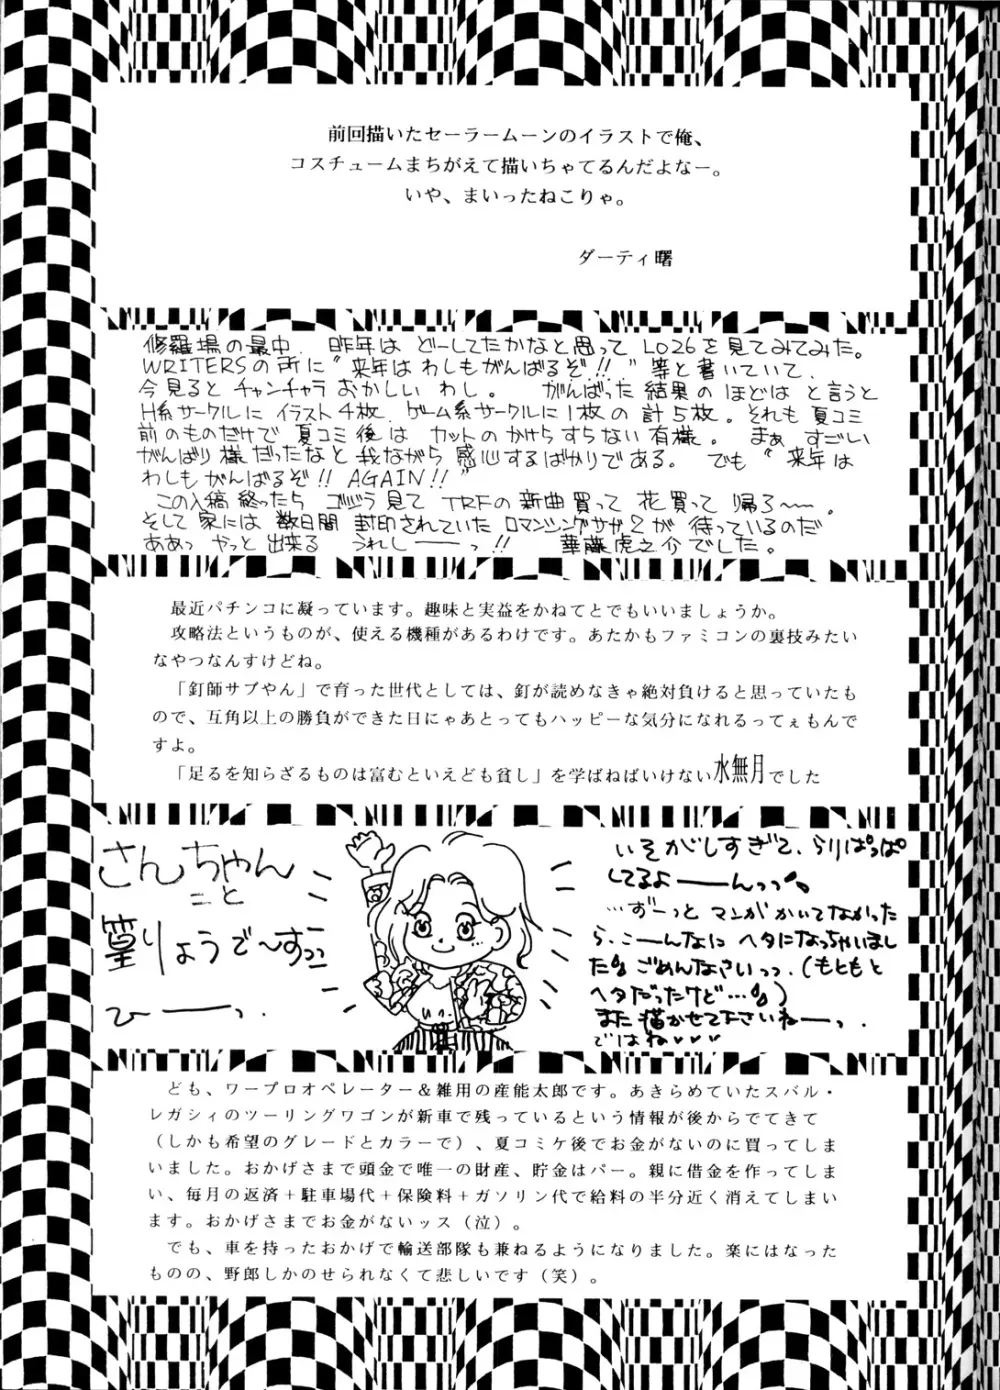 前回描いたセーラームーンのイラストで俺、
コスチュームまちがえて描いちゃてるんだよなー。
いや、まいったねこりゃ。
ダーティ曙
修羅場の最中、昨年はどーしてたかなと思ってLO26を見てみてみた。
WRITERSの所に"来年はわしもがんばるぞ!!"等と書いていて、
今見るとチャンチャラおかしいわし。 がんばった結果のほどはと言うと
H系サークルにイラスト4枚、ゲーム系サークルに1枚の計5枚。それも夏コミ
前のものだけで夏コミ後はカットのかけらすらない有様。まぁすごい
がんばり様だったなと我ながら感心するばかりである。でも"来年は
わしもがんばるぞ!! AGAIN!!"
この入稿終ったらゴジラ見てTRFの新曲買って花買って帰ろ〜。
そして家には数日間封印されていたロマンシングサガ2が待っているのだ
ああっやっと出来る うれしーーっ!! 華藤虎之介でした。
最近パチンコに凝っています。趣味と実益をかねてとでもいいましょうか。
攻略法というものが、使える機種があるわけです。あたかもファミコンの裏技みたい
なやつなんすけどね。
「釘師サブやん」で育った世代としては、釘が読めなきゃ絶対負けると思っていたも
ので、互角以上の勝負ができた日にゃあとってもハッピーな気分になれるってぇもんで
すよ。
「足るを知らざるものは富むといえども貧し」を学ばねばいけない水無月でした
さんちゃん
こと
篁りょうで〜すっっ
ひーーっ.
いそがしすぎて、らりぱっぱ
してるよーーんっっ
…ずーっとマンガかいてなかった
ら、こーんなにヘタになっちゃいまし
た ごめんなさいっっ.(もともと
ヘタだったけど…)
また描かせて下さいねーっ.
ではね♥♥♥
ども、ワープロオペレーター＆雑用の産能太郎です。あきらめていたスバル・
レガシィのツーリングワゴンが新車で残っているという情報が後からでてきて
（しかも希望のグレードとカラーで）、夏コミケ後でお金がないのに買ってしま
いました。おかげさまで頭金で唯一の財産、貯金はパー。親に借金を作ってしま
い、毎月の返済＋駐車場代＋保険料＋ガソリン代で給料の半分近く消えてしまい
ます。おかげさまでお金がないッス（泣）。
でも、車を持ったおかげで輸送部隊も兼ねるようになりました。楽にはなった
ものの、野郎しかのせられなくて悲しいです（笑）。